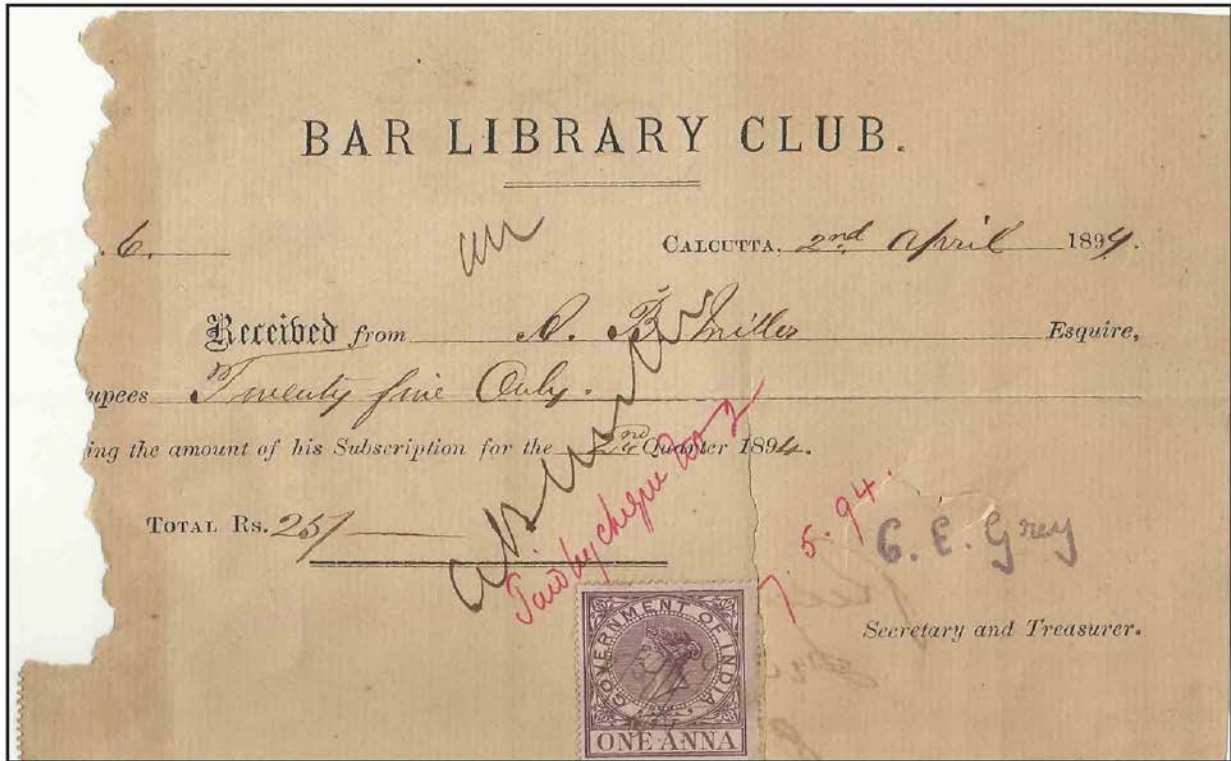 BAR LIBRARY CLUB.
6.
CALCUTTA, 2nd April 1894.
Received from A. B. Miller Esquire,
upees Twenty five Only.
ing the amount of his Subscription for the 2nd Quarter 1894.
TOTAL Rs. 25/
A B Miller
Paid by cheque
7.5.94.
C. E. Grey
Secretary and Treasurer.
GOVERNMENT OF INDIA
ONE ANNA